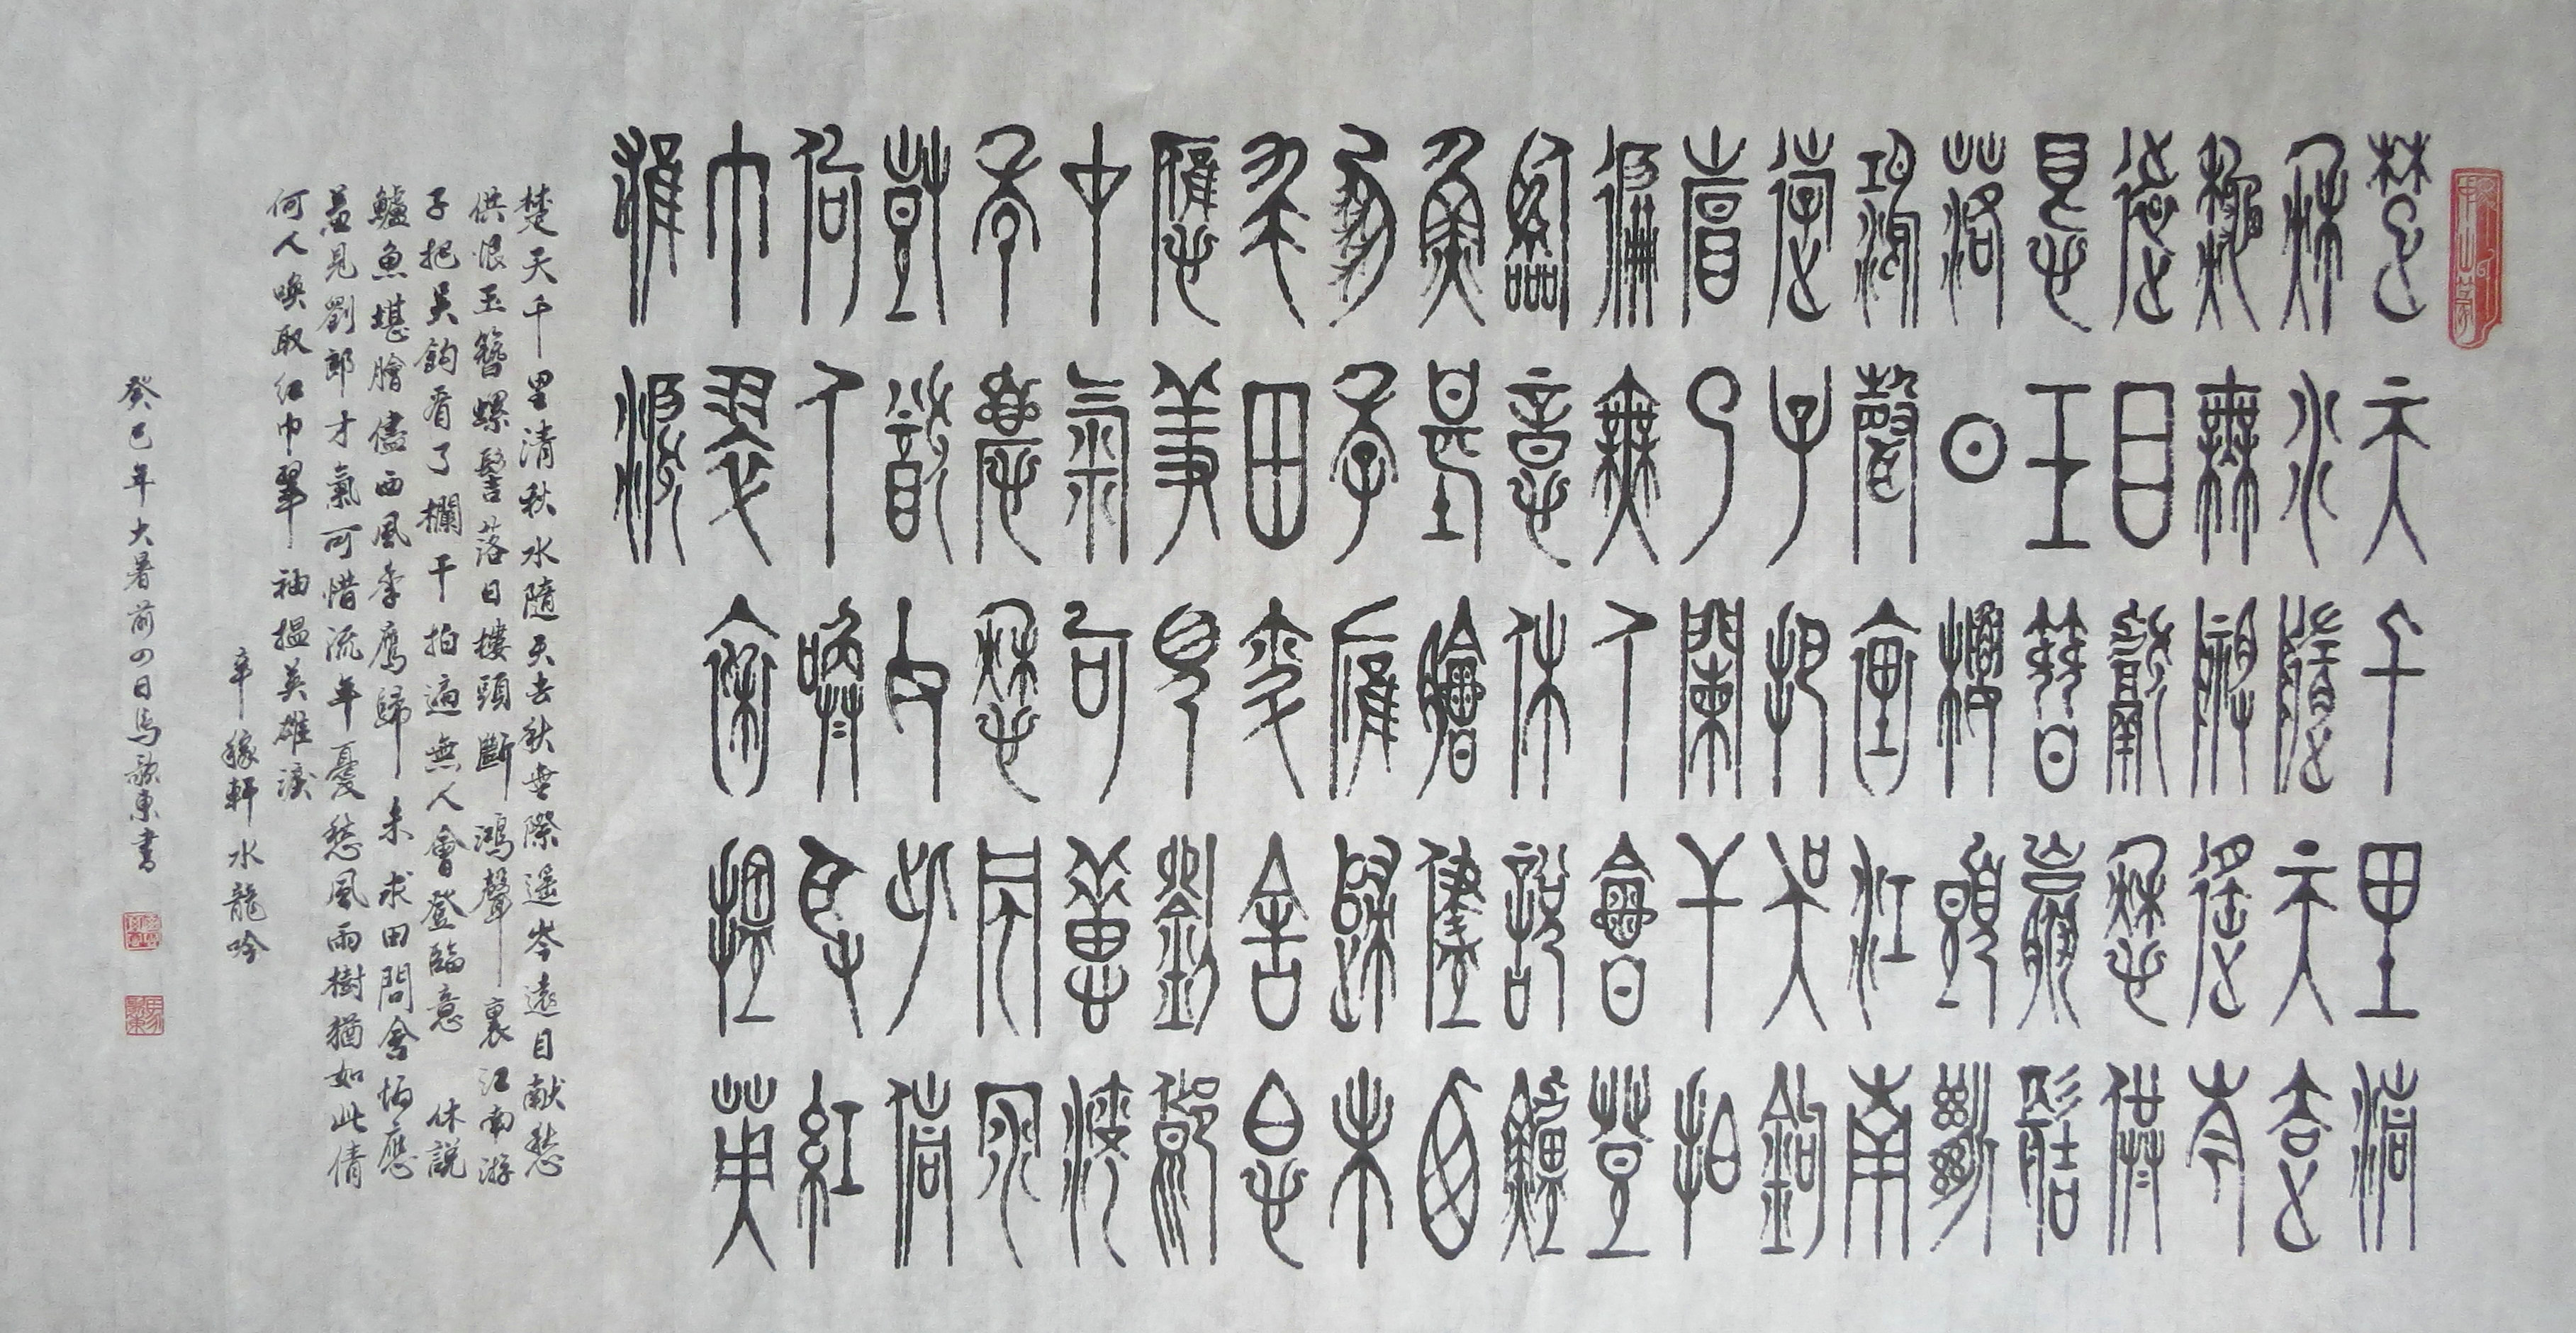 楚天千里清
秋水隨天去
秋無際遙岑
遠目獻愁供
恨玉簪螺髻
落日樓頭斷
鴻聲裏江南
游子把吳鉤
看了闌干拍
遍無人會登
臨意休說鱸
魚堪膾儘西
風季鷹歸未
求田問舍怕
應羞見劉郎
才氣可惜流
年憂愁風雨
樹猶如此倩
何人喚取紅
巾翠袖揾英
雄淚
楚天千里清秋水隨天去秋無際遙岑遠目獻愁
供恨玉簪螺髻落日樓頭斷鴻聲裏江南游
子把吳鉤看了欄干拍遍無人會登臨意 休說
鱸魚堪膾儘西風季鷹歸未求田問舍怕應
羞見劉郎才氣可惜流年憂愁風雨樹猶如此倩
何人喚取紅巾翠袖揾英雄淚
辛稼軒水龍吟
癸巳年大暑前四日馬歌東書